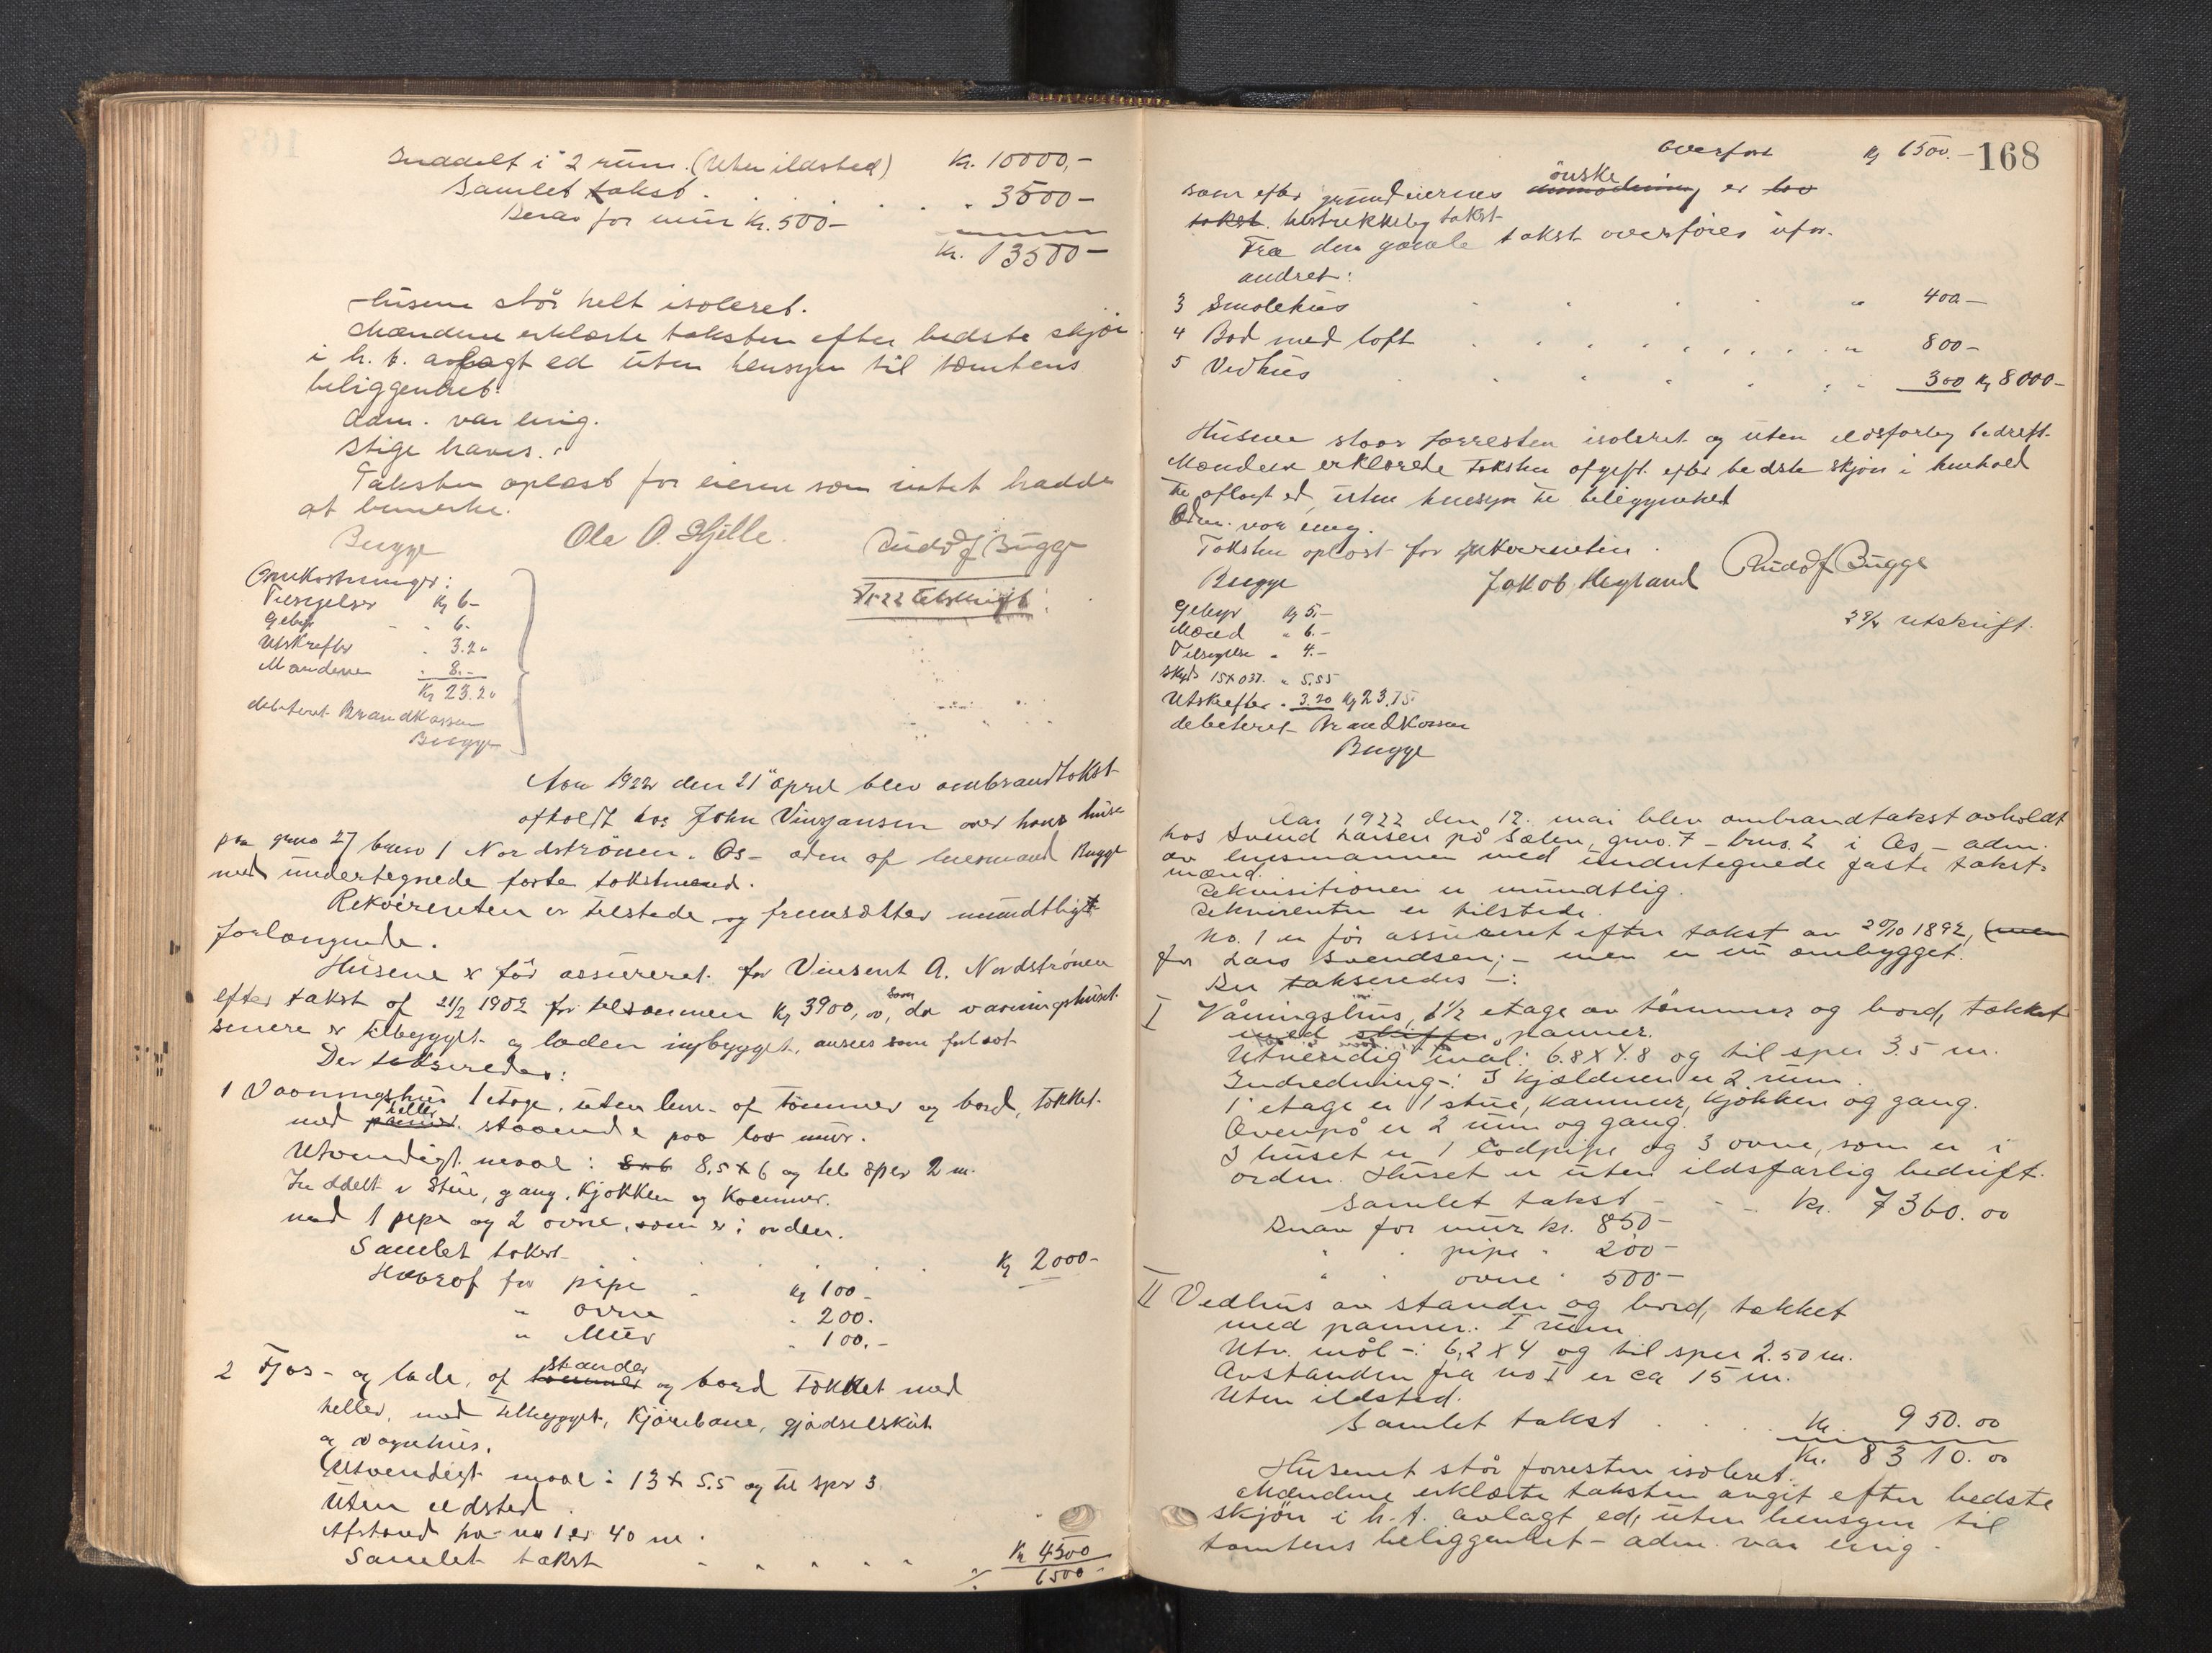 Inddelt i 2 rum. (Uten ildsted) Kr. 10000,-
Samlet takst . . . . . 3500-
Derav for mur Kr. 500-
Kr. 13500-
Husene står helt isoleret.
Mændene erklærte taksten efter bedste skjøn
i h. t. avlagt ed uten hensyn til tomtens
beliggenhet.
Adm. var enig.
Stige haves.
Taksten oplæst for eieren som intet hadde
at bemerke.
Bugge Ole O. Hjelle. Rudolf Bugge
Omkostninger:
Tilsigelser Kr 6-
Gebyr - " 6.
Utskrifter . 3.20
Mændene . 8.-
Kr 23.20
debiteret Brandkassen
Bugge
utskrift
Aar 1922 den 21 april blev ombrandtakst
afholdt hos John Vinsjansen over hans huse
paa gno 27 bno 1 Nordstrønen. Os - adm af lensmand Bugge
med undertegnede faste takstmænd.
Rekvirenten er tilstede og fremsætter mundtligt
forlangende.
Husene er før assureret for Vinsent A. Nordstrønen
efter takst af 21/2 1902 for tilsammen Kr 3900,00, som da vaaningshuset
senere er tilbygget og laden nybygget, ansees som forladt
Der takseredes:
1 Vaaningshus 1 etage, uten lem - af tømmer og bord, tækket
med panner heller staaende paa løs mur.
Utvendigt maal: 8x6 8,5 x 6 og til sper 2 m.
Inddelt i Stue, gang, Kjøkken og Kammer.
med 1 pipe og 2 ovne, som er i orden.
Samlet takst . . . . Kr 2000-
Herof for pipe - Kr 100-
" ovne . 200.
" Mur . 100.-
2 Fjøs- og lade, af tømmer stander og bord tækket med
heller, med tilbygget, Kjørebane, gjødselskut
og vognhus.
Utvendigt maal: 13 x 5.5 og til sper 3
Uten ildsted
Afstand fra no 1 er 40 m.
Samlet takst - " " " Kr 4500
6500-
Overført Kr 6500.- 168
som efter grundeiernes anmodning ønske er lav
takst. tilstrekkelig takst
Fra den gamle takst overføres ufor-
andret:
3 Smolehus . . . . " 400-
4 Bod med loft . . . . . . . " 800-
5 Vedhus . . . . . . 300 Kr 8000-
Husene staar forresten isoleret og uten ildsfarlig bedrift.
Mændene erklærede taksten afgift efter bedste skjøn i henhold
til aflagt ed, uten hensyn til beliggenhed
Adm. var enig.
Taksten oplæst for rekvirenten.
Bugge Jakob Hegland Rudolf Bugge
Gebyr Kr 5,-
Mænd " 6.-
Tilsigelse " 4.-
Skyds 15 x 037. " 5.55
Utskrifter . 3.20 Kr 23.75
debiteret Brandkassen
Bugge
utskrift.
Aar 1922 den 12. mai blev ombrandtakst avholdt
hos Svend Larsen på Sælen, gno. 7 - bno. 2 i Os - adm.
av lensmannen med undertegnede faste takst-
mænd.
Rekvisitionen er mundtlig.
Rekvirenten er tilstede.
No. 1 er før assureret efter takst av 20/10 1892, (men
for Lars Svendsen; - men er nu ombygget.
Der takseredes -:
I Våningshus, 1 1/2 etage av tømmer og bord, tækket
med skiffer, panner.
Utvendig mål: 6.8 x 4.8 og til sper 3.5 m.
Indredning -: I kjælderen er 2 rum.
1 etage er 1 stue, kammer, kjøkken og gang.
Ovenpå er 2 rum og gang.
I huset er 1 lodpipe og 3 ovne, som er i
orden. Huset er uten ildsfarlig bedrift.
Samlet takst - - - Kr. 7360.00
Derav for mur kr. 850-
" . pipe " 200-
" . ovne " 500-
II Vedhus av stander og bord, tækket
med panner. I rum
Utv. mål -: 6,2 x 4 og til sper 2.50 m.
Avstanden fra no I er ca 15 m.
Uten ildsted.
Samlet takst . . . Kr. 950.00
Kr. 8310.00
Husenet står forresten isoleret.
Mændene erklærte taksten avgit efter bedste
skjøn i h. t. avlagt ed, uten hensyn til
tomtens beliggenhet - adm. var enig.